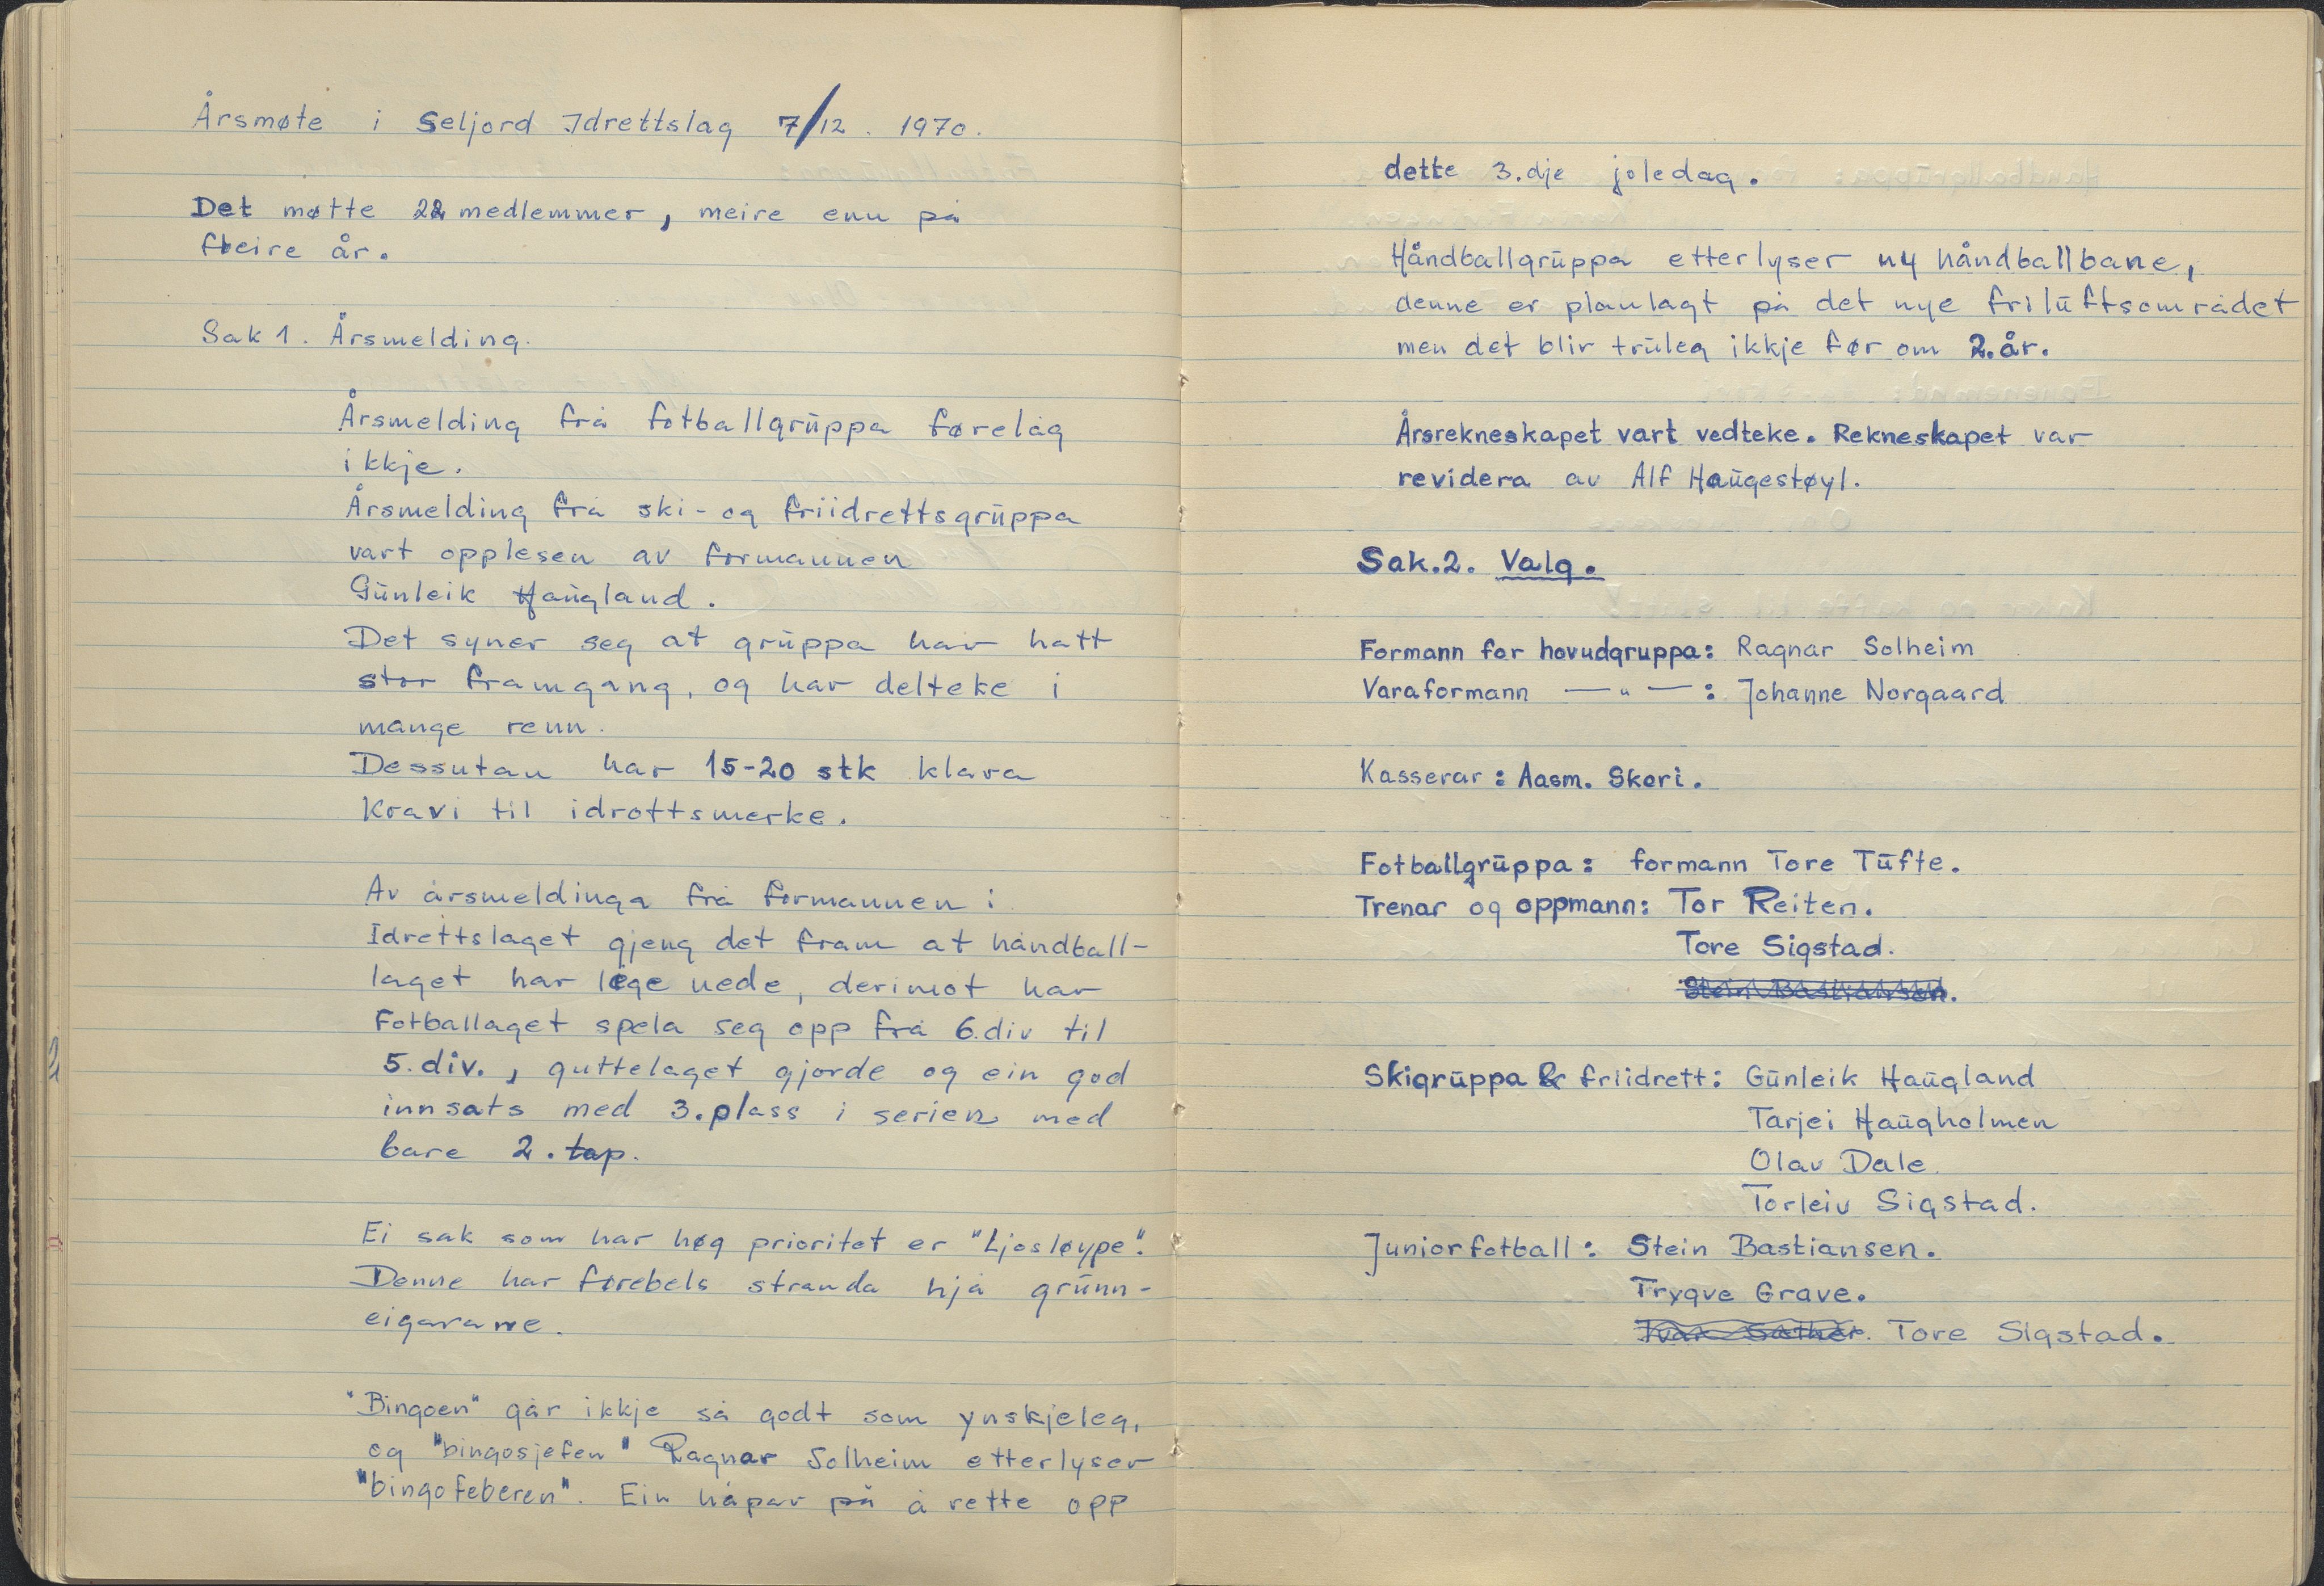 Årsmøte i Seljord Idrettslag 7/12. 1970.
Det møtte 22 medlemmer, meire enn på
fleire år.
Sak 1. Årsmelding.
Årsmelding frå fotballgruppa førelåg
ikkje.
Årsmelding frå ski- og friidrettsgruppa
vart opplesen av formannen
Gunleik Haugland.
Det syner seg at gruppa har hatt
stor framgang, og har delteke i
mange renn.
Dessutan har 15-20 stk klara
Kravi til idrottsmerke.
Av årsmeldinga frå formannen i
Idrettslaget gjeng det fram at håndball-
laget har lege nede, derimot har
Fotballaget spela seg opp frå 6.div til
5. div., guttelaget gjorde og ein god
innsats med 3. plass i serien med
bare 2. tap.
Ei sak som har høg prioritet er "Ljosløype".
Denne har førebels stranda hjå grunn-
eigarane.
"Bingoen" går ikkje så godt som ynskjeleg,
og "bingosjefen" Ragnar Solheim etterlyser
"bingofeberen". Ein håpar på å rette opp
dette 3.dje joledag.
Håndballgruppa etterlyser ny håndballbane,
denne er planlagt på det nye friluftsområdet
men det blir truleg ikkje før om 2. år.
Årsrekneskapet vart vedteke. Rekneskapet var
revidera av Alf Haugestøyl.
Sak. 2. Valg.
Formann for hovudgruppa: Ragnar Solheim
Varaformann —"—: Johanne Norgaard
Kasserar: Aasm. Skori.
Fotballgruppa: formann Tore Tufte.
Trenar og oppmann: Tor Reiten.
Tore Sigstad.
Stein Bastiansen.
Skigruppa & friidrett: Gunleik Haugland
Tarjei Haugholmen
Olav Dale
Torleiv Sigstad.
Juniorfotball: Stein Bastiansen.
Trygve Grave.
Ivar Sæther. Tore Sigstad.